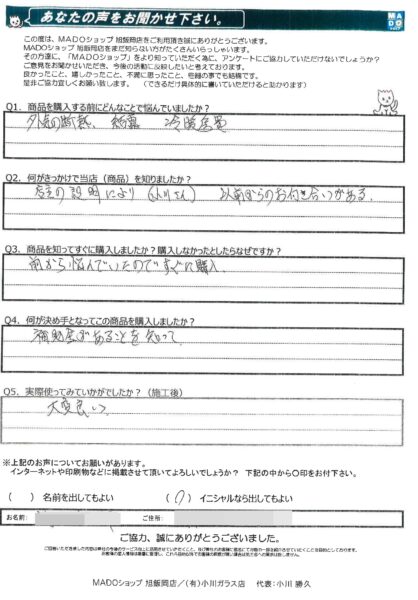 あなたの声をお聞かせ下さい。
MADO
この度は、MADOショップ 旭飯岡店をご利用頂き誠にありがとうございます。
MADOショップ 旭飯岡店をまだ知らない方がたくさんいらっしゃいます。
その方達に、「MADOショップ」をより知っていただく為に、アンケートにご協力していただけないでしょうか？
ご意見をお聞かせいただき、今後の活動に反映したいと存じております。
良かったこと、嬉しかったこと、不満に思ったこと、苦情の事でも結構です。
是非ご協力宜しくお願い致します。 （できるだけ具体的に書いていただけると助かります）
Q1．商品を購入する前にどんなことで悩んでいましたか？
外気の断熱、結露 冷暖房
Q2．何がきっかけで当店（商品）を知りましたか？
の説明により（小川さん） 以前からのお付き合いがある。
Q3．商品を知ってすぐに購入しましたか？購入しなかったとしたらなぜですか？
前から悩んでいたのですぐに購入
Q4．何が決め手となってこの商品を購入しましたか？
補助金があることを知って
Q5．実際使ってみていかがでしたか？（施工後）
大変良い
※上記のお声についてお願いがあります。
インターネットや印刷物などに掲載させて頂いてよろしいでしょうか？ 下記の中から○印をお付下さい。
（ ） 名前を出してもよい （○） イニシャルなら出してもよい
お名前: ご住所:
ご協力、誠にありがとうございました。
MADOショップ 旭飯岡店／（有）小川ガラス店 代表：小川 勝久